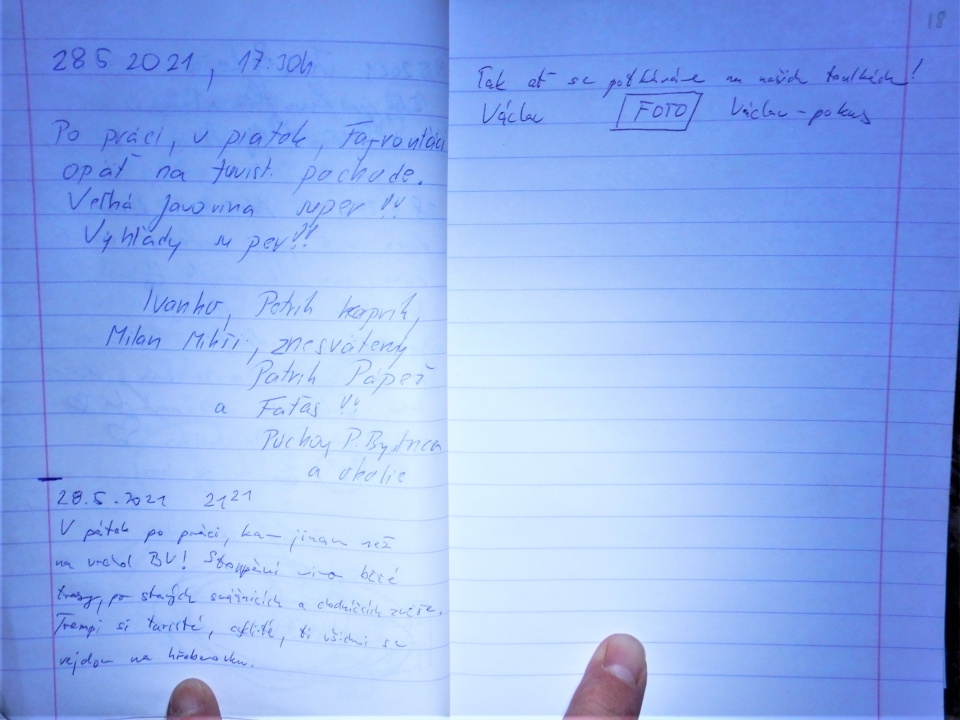 28 5 2021, 17:30h
Po práci, v piatok,
opäť na turist. pochode.
Veľká Javorina super !!
Výhľady super!!
Ivanko, Patrik
Milan
Patrik
a
Puchov, P. Bystrica
a okolie
28.5.2021 21 21
V pátek po práci, kam jinam než
na vrchol BV! Stoupání mimo běžné
trasy, po starých svážnicích a chodníčcích zvěře.
Trempi si turisté, cyklisté, ti všichni se
vejdou na hřebenovku.
18
Tak ať se potkáváme na našich toulkách!
Václav FOTO Václav - pokus